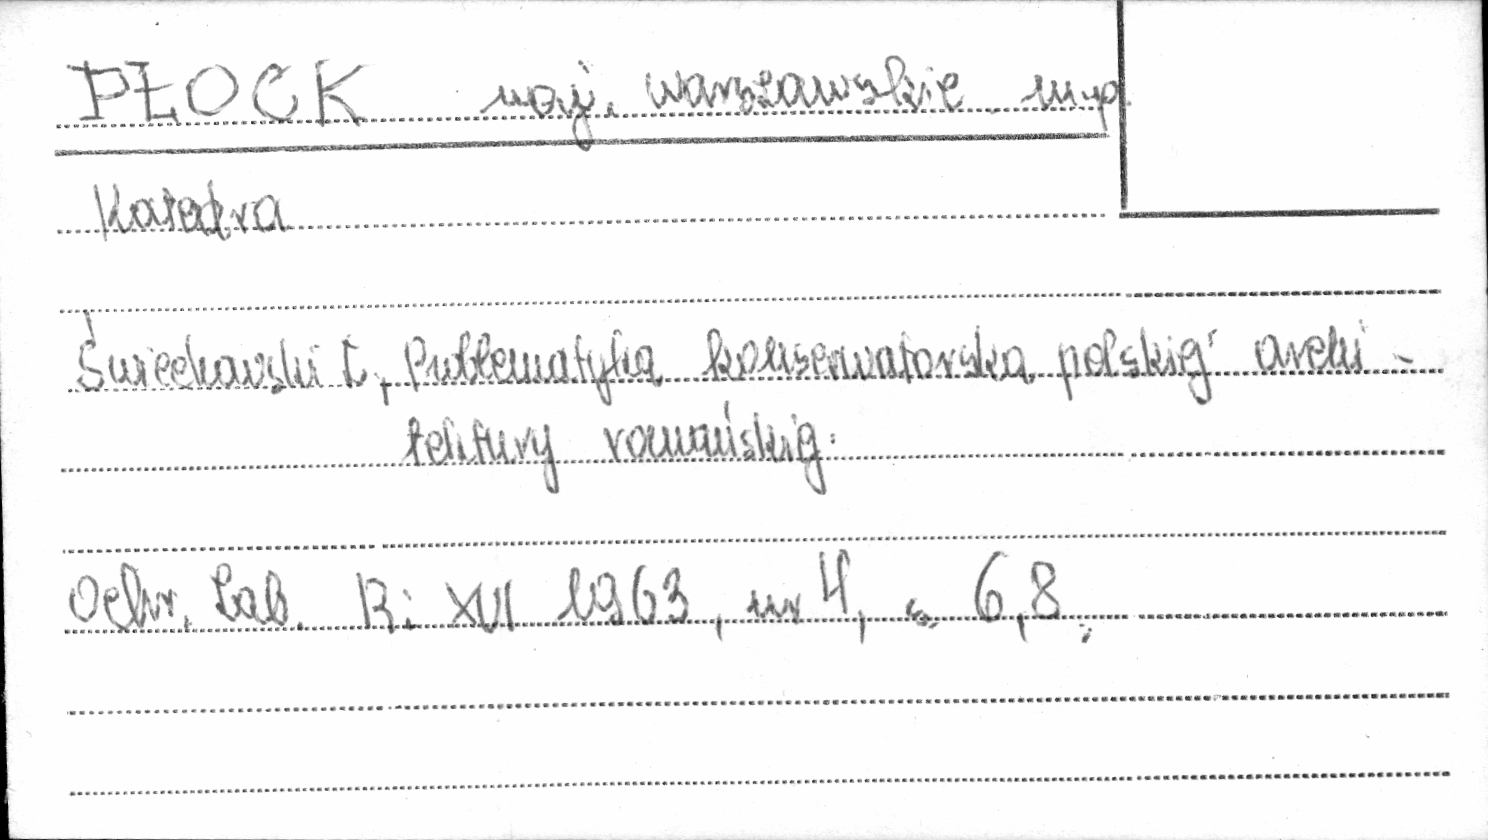 PŁOCK woj. warszawskie m.p.
Katedra
Świechowski Z, Problematyka konserwatorska polskiej archi-
tektury romańskiej.
Ochr. Zab. R: XVI 1963, nr 4, s. 6,8.